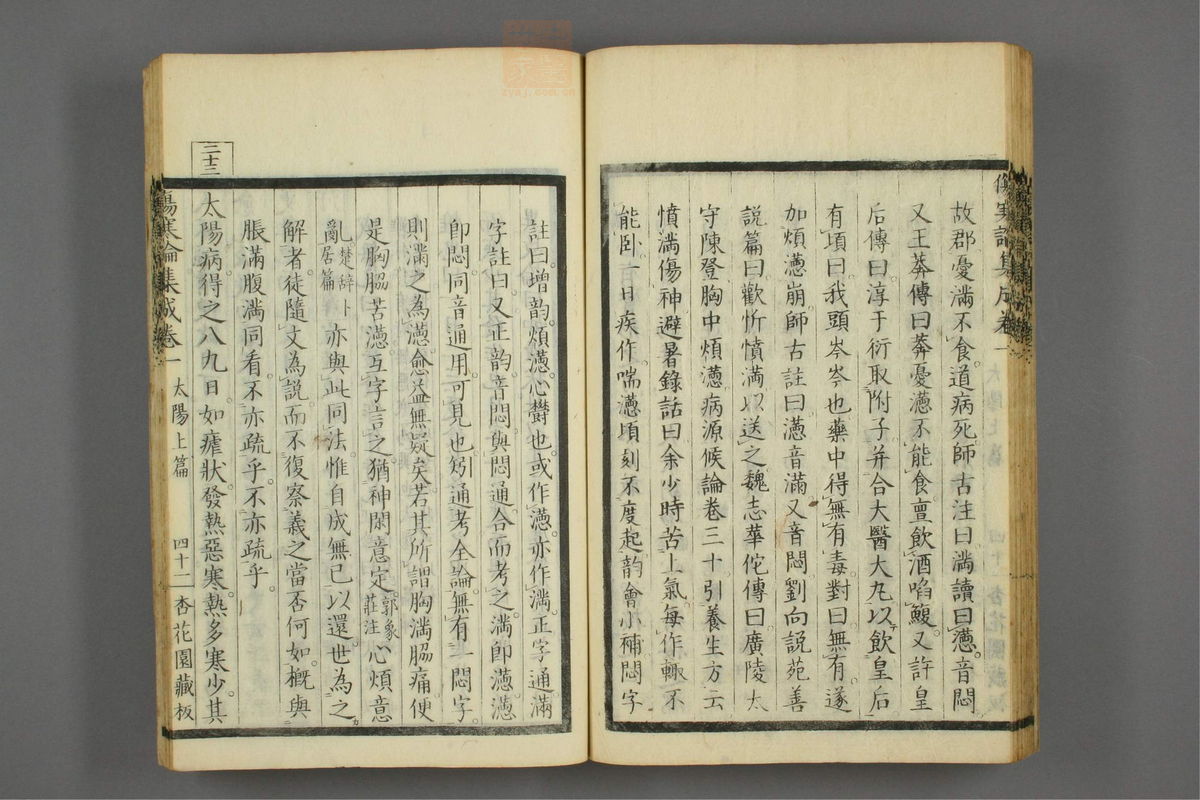 故郡憂滿不食道病死師古注曰滿讀曰懣音悶
又王莽傳曰莽憂懣不能食亶飲酒啗鰒又許皇
后傳曰淳于衍取附子并合大醫大丸以飲皇后
有頃曰我頭岑岑也藥中得無有毒對曰無有遂
加煩懣崩師古註曰懣音滿又音悶劉向說苑善
說篇曰歡忻憤滿以送之魏志華佗傳曰廣陵太
守陳登胸中煩懣病源候論卷三十引養生方云
憤滿傷神避暑錄話曰余少時苦上氣每作輙不
能臥一日疾作喘懣頃刻不度起韵會小補悶字
註曰增韵煩懣心欝也或作懣亦作滿正字通滿
字註曰又正韵音悶與悶通合而考之滿即懣懣
即悶同音通用可見也矧通考全論無有一悶字
則滿之為懣愈益無疑矣若其所謂胸滿脇痛便
是胸脇苦懣互字言之猶神閑意定郭象莊注心煩意
亂楚辞卜居篇亦與此同法惟自成無已以還世為之
解者徒隨文為說而不復察義之當否何如概與
脹滿腹滿同看不亦疏乎不亦疏乎
三十三
太陽病得之八九日如瘧狀發熱惡寒熱多寒少其
傷寒論集成卷一 太陽上篇 四十二 杏花園藏板
zysj.com.cn